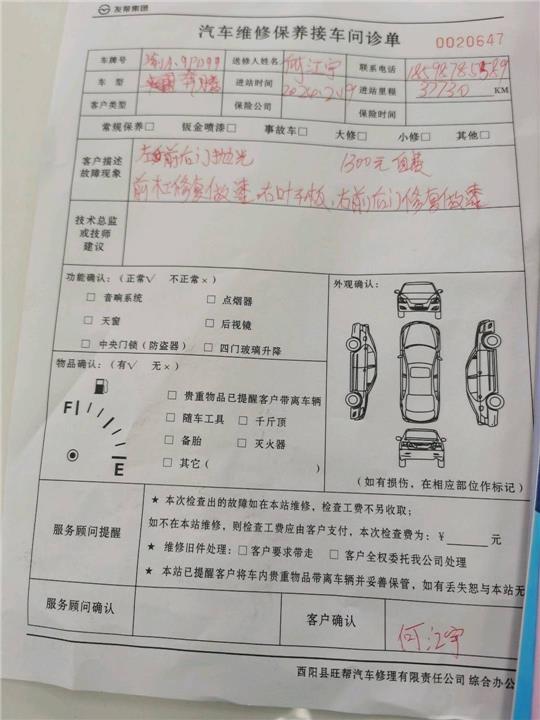 友帮集团
汽车维修保养接车问诊单
0020647
车牌号 送修人姓名 何江宇 联系电话
车型 奔腾 进站时间 进站里程 37730 KM
客户类型 保险公司 保险时间
常规保养□ 钣金喷漆□ 事故车□ 大修□ 小修□ 其他□
客户描述
故障现象
左前后门抛光 1300元
前杠修复做漆 右叶子板,右前后门修复做漆
技术总监
或技师
建议
功能确认:(正常√ 不正常×) 外观确认:
□ 音响系统 □ 点烟器
□ 天窗 □ 后视镜
□ 中央门锁(防盗器) □ 四门玻璃升降
物品确认:(有√ 无×)
□ 贵重物品已提醒客户带离车辆
□ 随车工具 □ 千斤顶
□ 备胎 □ 灭火器
□ 其它( )
F
E
(如有损伤,在相应部位作标记)
服务顾问提醒
★ 本次检查出的故障如在本站维修,检查工费不另收取;
如不在本站维修,则检查工费应由客户支付,本次检查费为:¥ 元
★ 维修旧件处理:□客户要求带走 □ 客户全权委托我公司处理
★ 本站已提醒客户将车内贵重物品带离车辆并妥善保管,如有丢失恕与本站无
服务顾问确认 客户确认 何江宇
酉阳县旺帮汽车修理有限责任公司 综合办公